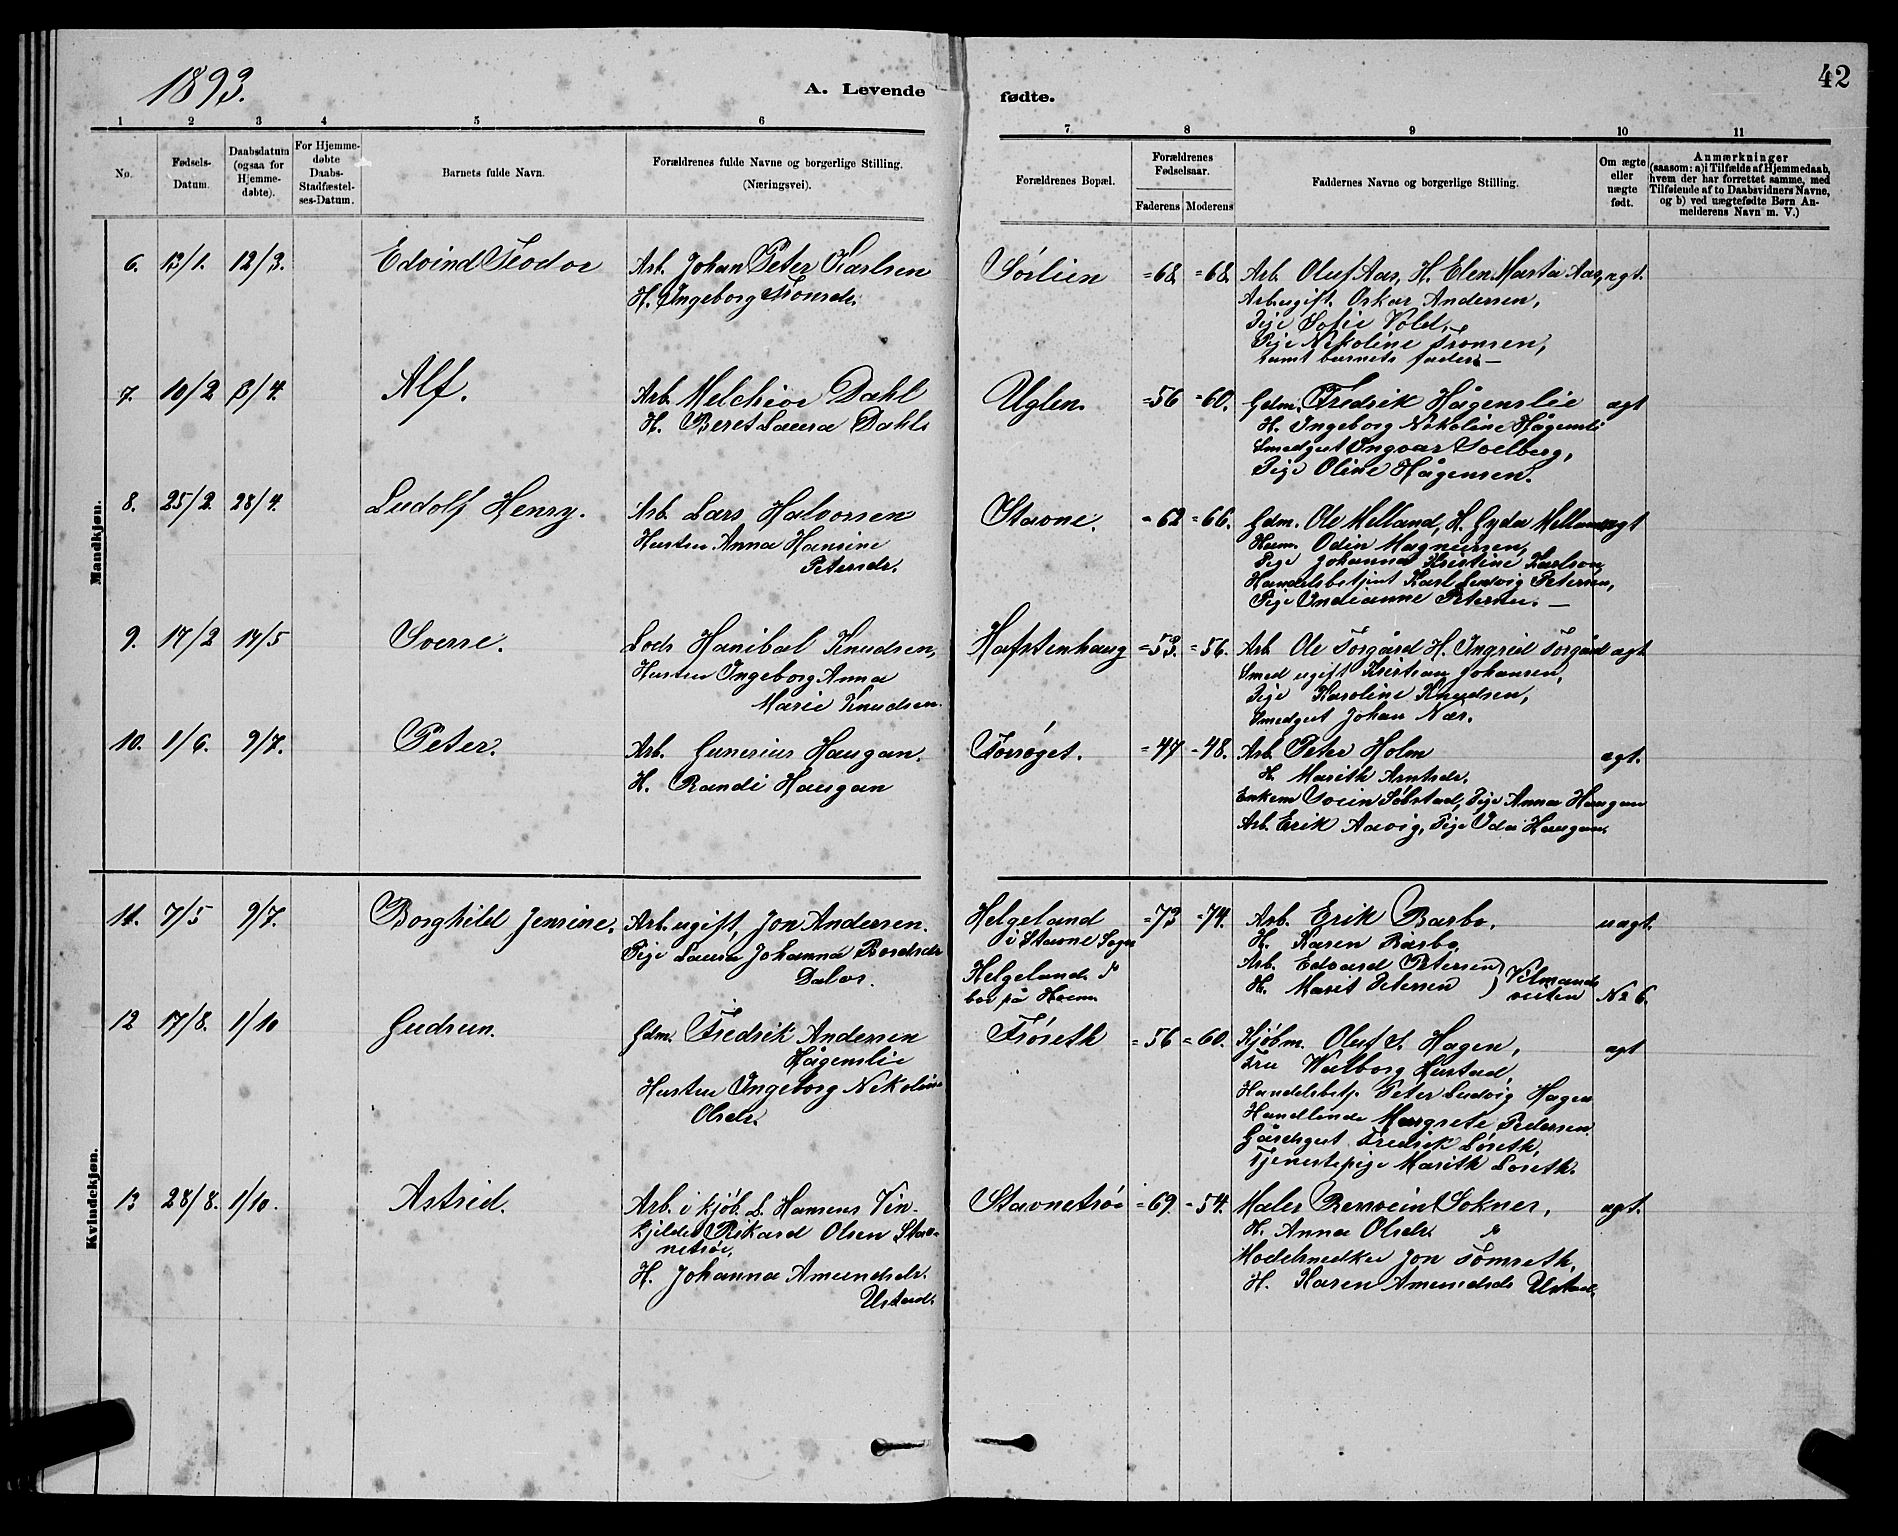 1893.
A. Levende
fødte.
42
1 2 3 4 5 6 7 8 9 10 11
No.
Fødsels-
Datum.
Daabsdatum
(ogsaa for
Hjemme-
døbte).
For Hjemme-
døbte
Daabs-
Stadfæstel-
ses-Datum.
Barnets fulde Navn.
Forældrenes fulde Navne og borgerlige Stilling.
(Næringsvei).
Forældrenes Bopæl.
Forældrenes
Fødselsaar.
Faderens Moderens
Faddernes Navne og borgerlige Stilling.
Om ægte
eller
uægte
født.
Anmærkninger
(saasom: a) i Tilfælde af Hjemmedaab,
hvem der har forrettet samme, med
Tilføiende af to Daabsvidners Navne,
og b) ved uægtefødte Børn An-
melderens Navn m. V.)
Mandkjøn.
6. 13/1. 12/3. Edvind Teodor
Arb. Johan Peter Karlsen
H. Ingeborg Tronsdr.
Sørlien =68. =68.
Arb. Oluf Aas, H. Elen Marta Aas, ægt.
Arb. ugift. Oskar Andersen,
Pige Sofie Vold,
Pige Nikoline Tronsen,
samt barnets fader. —
7. 10/2 3/4. Alf.
Arb. Melchior Dahl
H. Beret Laura Dahl
Uglen. =56 =60.
Gdm. Fredrik Hågenslie ægt
H. Ingeborg Nikoline Hågensli
Smedgut Ingvar Solberg,
Pige Oline Hågensen.
8. 25/2. 28/4. Ludolf Henry.
Arb. Lars Halvorsen
Hustru Anna Hansine
Petersdr.
Stavne. =62 =66.
Gdm. Ole Melland, H. Gyda Melland ægt
Odin Magnussen,
Pige Johanna Kristine Karlson,
Handelsbetjent Karl Ludvig Petersen,
Pige Indianne Petersen. —
9. 17/2 14/5 Sverre.
Lods Hanibal Knudsen,
Hustru Ingeborg Anna
Marie Knudsen.
Hafstenhaug =53. =56.
Arb. Ole Torgård H. Ingrid Torgård ægt
Smed ugift Kristian Johansen,
Pige Karoline Knudsen,
Smedgut Johan Næs.
10. 1/6. 9/7. Peter.
Arb. Gunerius Haugan.
H. Randi Haugan
Forsøget. =47 =48.
Arb. Peter Holm ægt.
H. Marith Arntsdr.
Enkem Svein Søbstad, Pige Anna Haugan
Arb. Erik Aavig, Pige Oda Haugan.
Kvindekjøn.
11. 7/5 9/7. Borghild Jensine.
Arb. ugift, Jon Andersen.
Pige Laura Johanna Bordsdr
Dalos.
Helgeland
i Stavne Sogn
Helgeland
bor på
=73 =74.
Arb. Erik Barbo. uægt.
H. Karen Barbo
Arb. Edvard Petersen
H. Marit Petersen
No 6.
12 17/8. 1/10 Gudrun.
Gdm. Fredrik Andersen
Hågenslie
Hustru Ingeborg Nikoline
Olsdr.
Trøseth =56 =60.
Kjøbm. Oluf S. Hagen, ægt
Fru Walborg Hustad,
Handelsbetj. Peter Ludvig Hagen
Handlende Margrete Pedersen.
Gårdsgut Fredrik Løseth,
Tjenestepige Marith Løseth.
13 28/8. 1/10. Astrid.
Arb. i kjøb. L. Hansens Vin-
kjelder Rikard Olsen Stav-
netrøe.
H. Johanna Amundsdr.
Ustad.
Stavnetrøe =69. =54.
Maler Bernvein Sokner, ægt.
H. Anna Olsdr. "
Modelsnedker Jon Tomseth.
H. Karen Amundsdr Ustad.